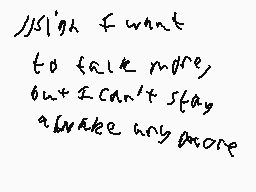 //sigh I want
to talk more,
but I can't stay
awake any more